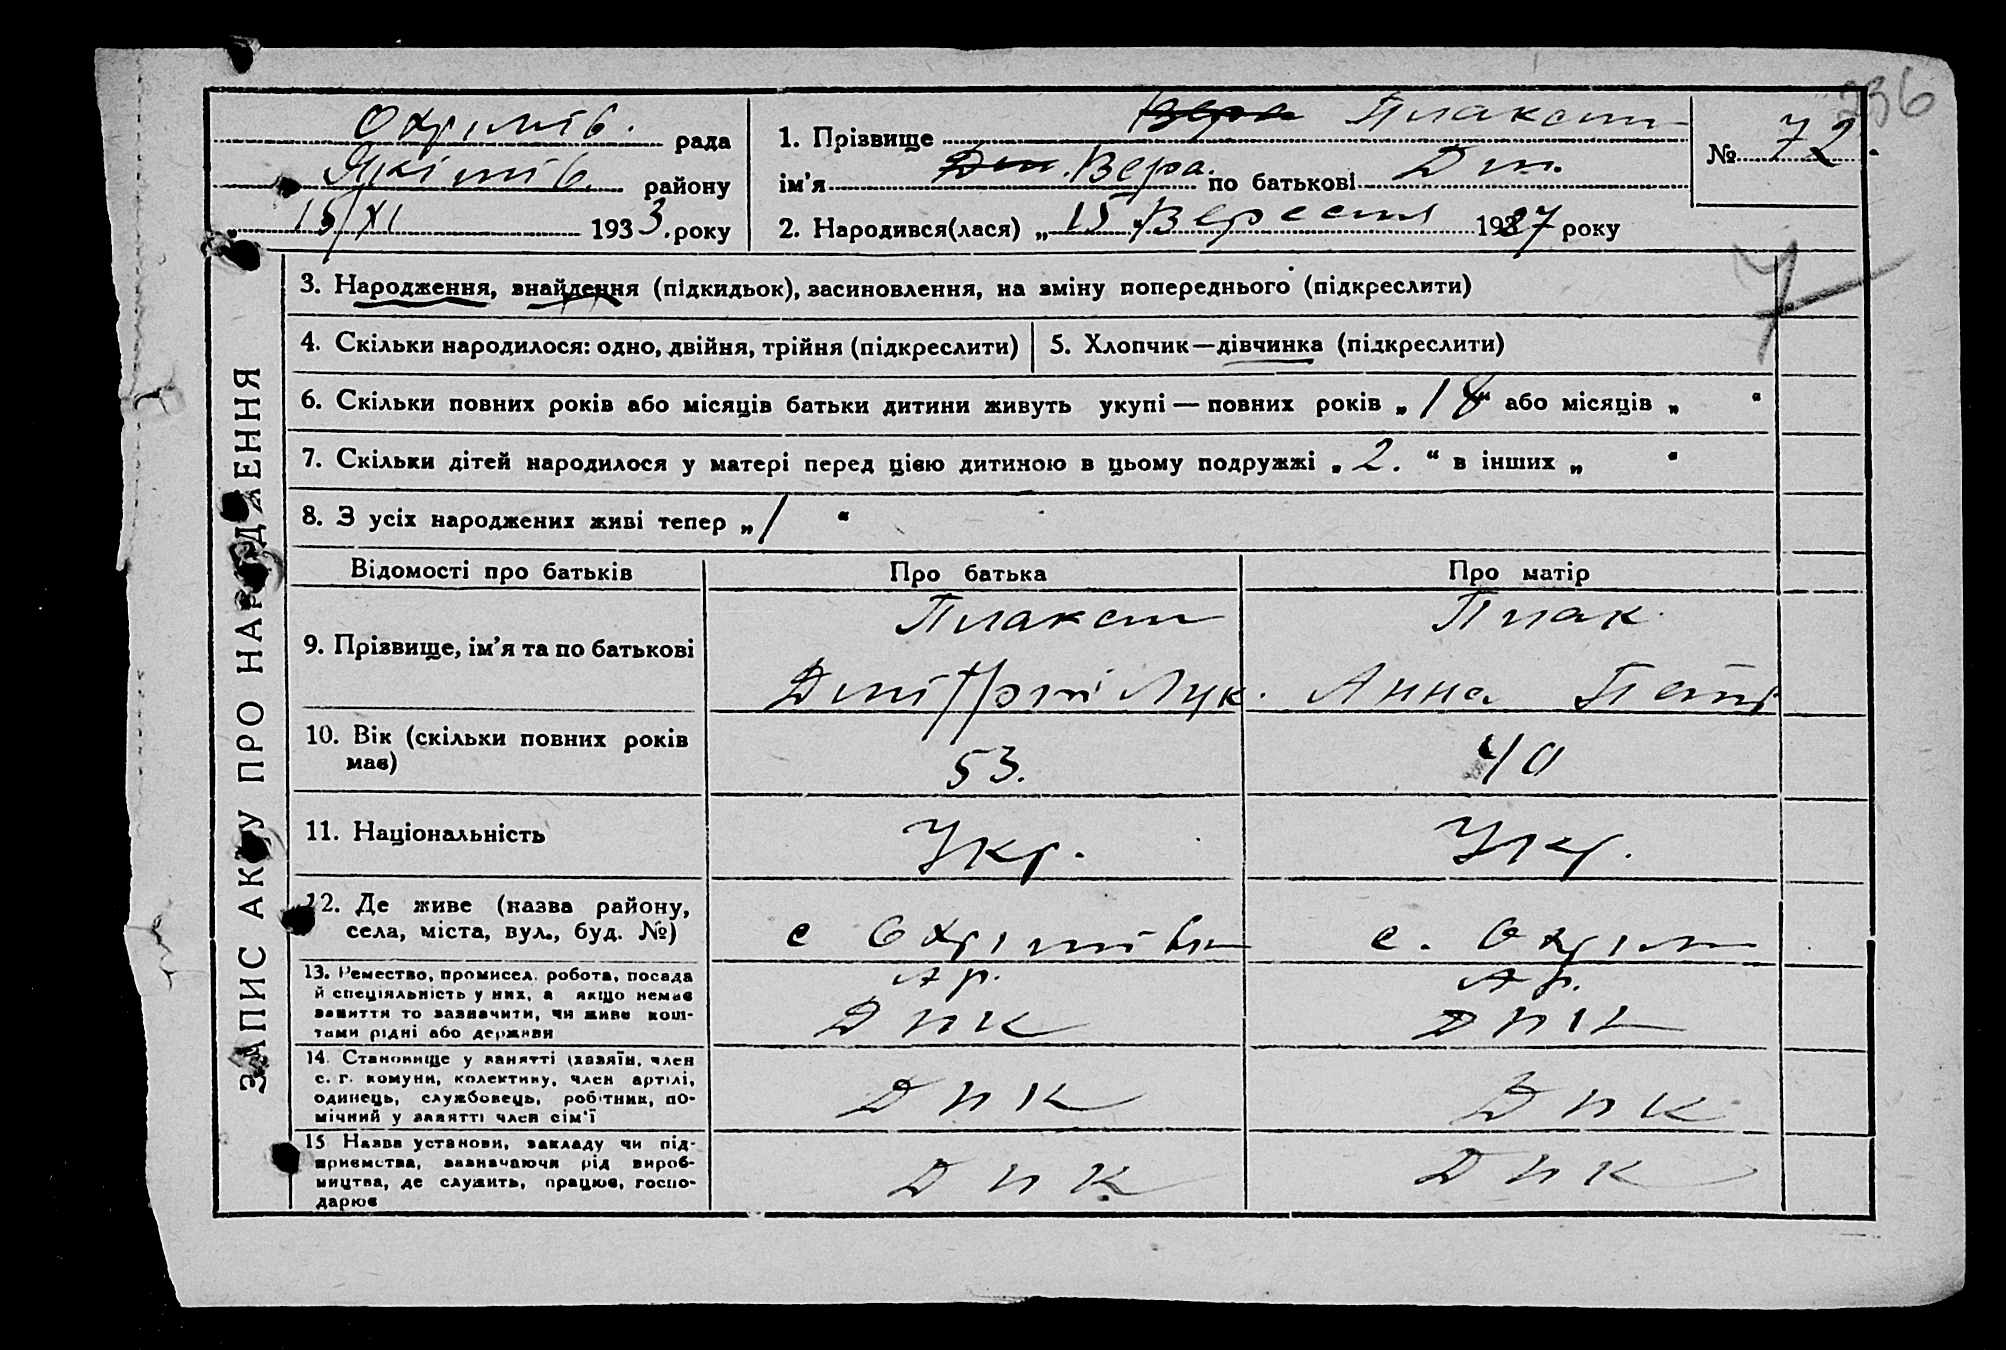 236
Охрімів. рада
Якімів. району
„ 15/XI 1933. року
1. Прізвище Вера Плаксин
ім’я Дм. Вера. по батькові Дм.
2. Народився(лася) „ 15 „ Вересня 1927 року
№ 72.
ЗАПИС АКТУ ПРО НАРОДЖЕННЯ
3. Народження, знайдення (підкидьок), засиновлення, на зміну попереднього (підкреслити)
4. Скільки народилося: одно, двійня, трійня (підкреслити)
5. Хлопчик—дівчинка (підкреслити)
6. Скільки повних років або місяців батьки дитини живуть укупі — повних років „ 18 “ або місяців „ “
7. Скільки дітей народилося у матері перед цією дитиною в цьому подружжі „ 2. “ в інших „ “
8. З усіх народжених живі тепер „ 1 “
Відомості про батьків Про батька Про матір
9. Прізвище, ім’я та по батькові
Плаксин
Дмітрій Лук.
Плак.
Анна
10. Вік (скільки повних років має)
53.
40
11. Національність
Укр.
Укр.
12. Де живе (назва району,
села, міста, вул., буд. №)
с Охрімівка
с. Охрім
13. Ремество, промисел. робота, посада
й спеціяльність у них, а якщо немає
заняття то зазначити, чи живе кош-
тами рідні або держави
Др.
Днк
Др.
Днк
14. Становище у занятті (хазяїн, член
с. г. комуни, колективу, член артілі,
одинець, службовець, робітник, по-
мічний у занятті член сім’ї
Днк
Днк
15 Назва установи, закладу чи під-
приємства, зазначаючи рід вироб-
ництва, де служить, працює, госпо-
дарює
Днк
Днк